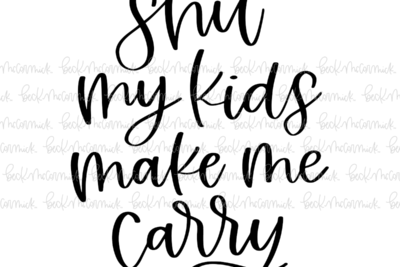 shit
my kids
make me
carry